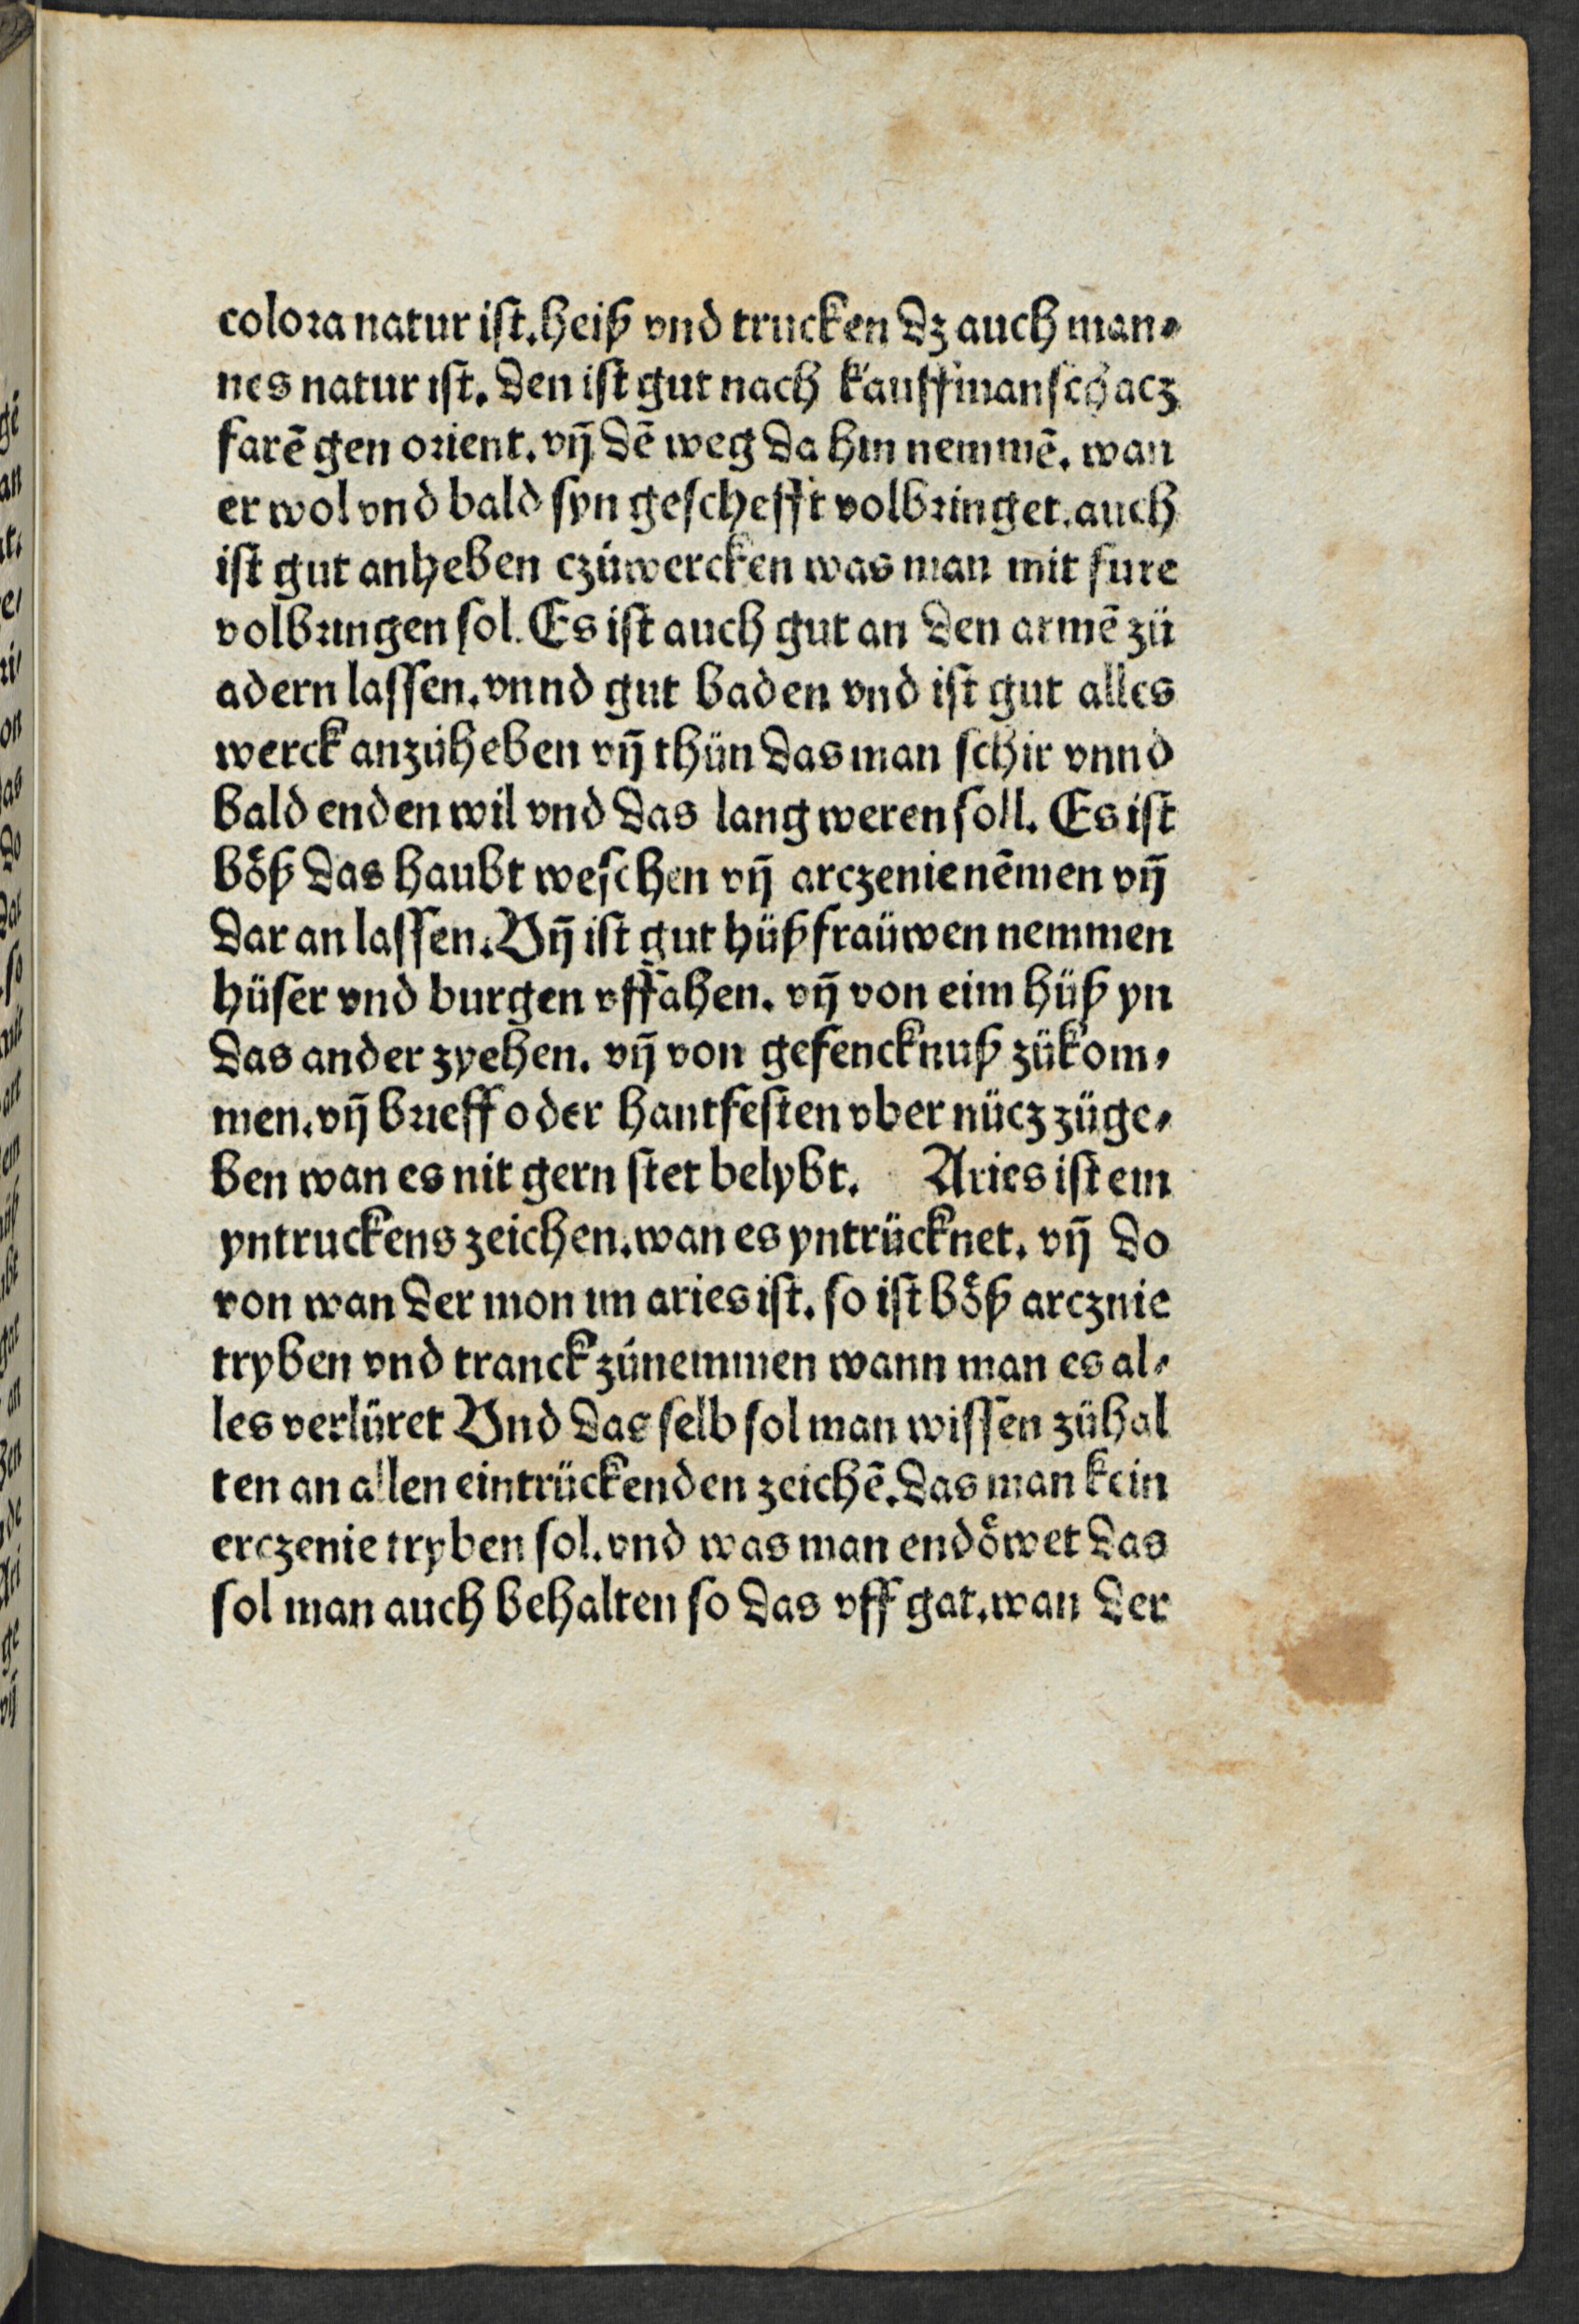 colora natur ist. heiß vnd trucken dz auch man⸗
nes natur ist. den ist gut nach kauffmanschacz
farē gen orient. vñ dē weg da hin nemmē. wan
er wol vnd bald syn geschefft volbringet. auch
ist gut anheben czúwercken was man mit fure
volbringen sol. Es ist auch gut an den armē zü
adern lassen. vnnd gut baden vnd ist gut alles
werck anzúheben vñ thün das man schir vnnd
bald enden wil vnd das lang weren soll. Es ist
böß das haubt weschen vñ arczenie nēmen vñ
dar an lassen. Vñ ist gut hüßfraüwen nemmen
hüser vnd burgen vffahen. vñ von eim hüß yn
das ander zyehen. vñ von gefencknuß zükom⸗
men. vñ brieff oder hantfesten vber nücz züge⸗
ben wan es nit gern stet belybt. Aries ist ein
yntruckens zeichen. wan es yntrücknet. vñ do
von wan der mon im aries ist. so ist böß arcznie
tryben vnd tranck zúnemmen wann man es al⸗
les verlüret Vnd das selb sol man wissen zühal
ten an allen eintrückenden zeichē. das man kein
erczenie tryben sol. vnd was man endöwet das
sol man auch behalten so das vff gat. wan der